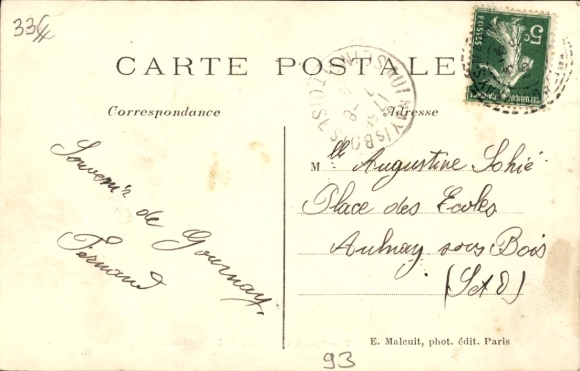 33
CARTE POSTALE
5c
POSTES
Correspondance
Adresse
Souvenir de Gournay.
Fernand
M lle Augustine Sohié
Place des Ecoles
Aulnay sous Bois
(S et O)
E. Malcuit, phot. édit. Paris
93